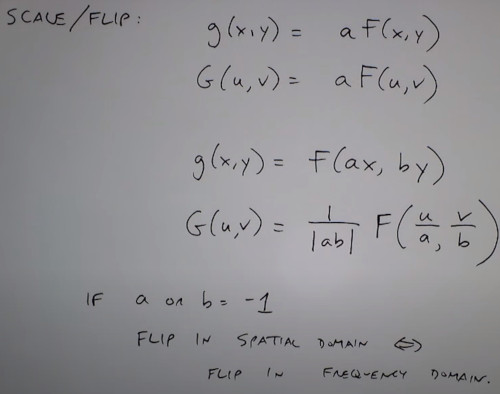 SCALE/FLIP: g(x,y) = a F(x,y)
G(u,v) = a F(u,v)
g(x,y) = F(ax, by)
G(u,v) = 1/|ab| F(u/a, v/b)
IF a or b = -1
FLIP IN SPATIAL DOMAIN ⇔
FLIP IN FREQUENCY DOMAIN.